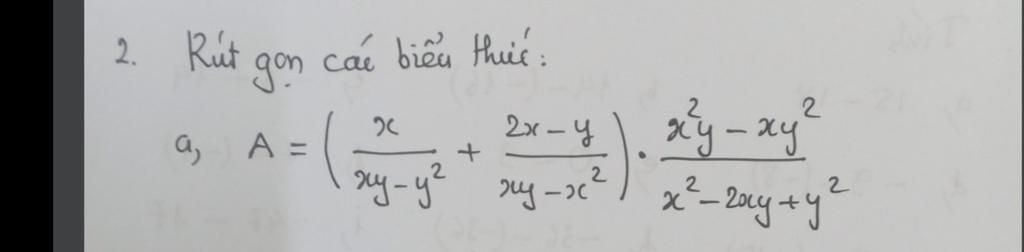 2. Rút gọn các biểu thức:
a, A = (x/(xy-y²) + (2x-y)/(xy-x²)) · (x²y-xy²)/(x²-2xy+y²)